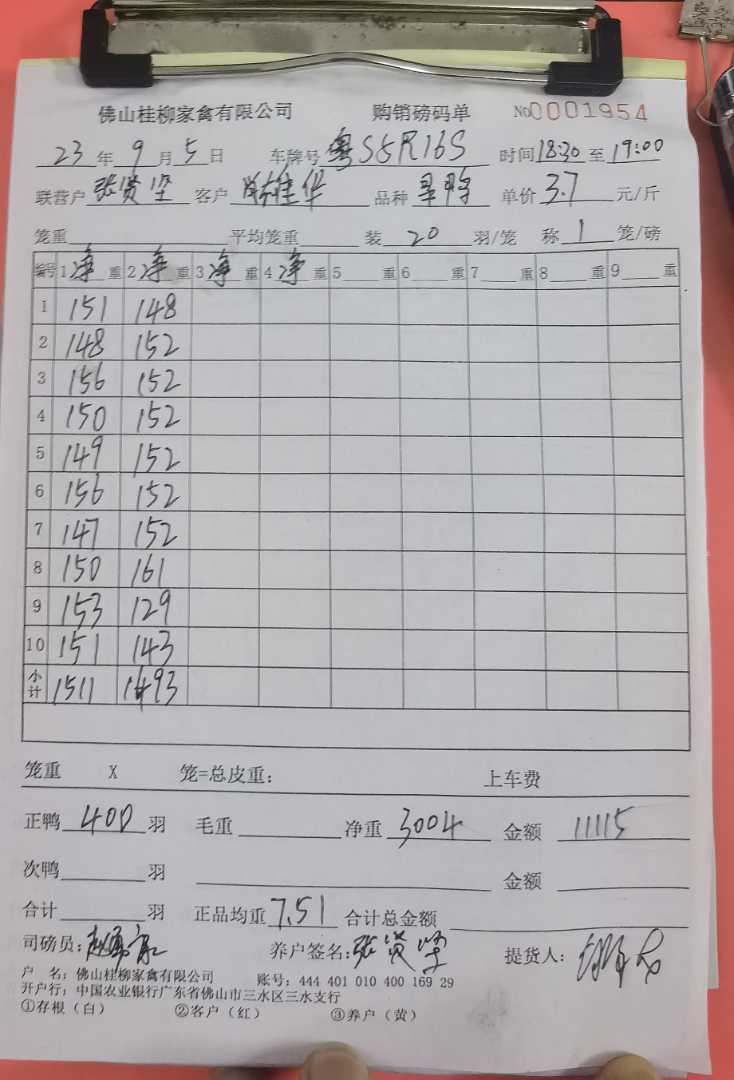 佛山桂柳家禽有限公司 购销磅码单 No0001954
23年9月5日 车牌号 粤S5R16S 时间18:30至19:00
联营户 张贤坚 客户 雄华 品种 单价3.7元/斤
笼重 平均笼重 装 20 羽/笼 称 1 笼/磅
编号 1净重 2净重 3净重 4净重 5 重 6 重 7 重 8 重 9 重
1 151 148
2 148 152
3 156 152
4 150 152
5 149 152
6 156 152
7 147 152
8 150 161
9 153 129
10 151 143
小计 1511 1493
笼重 X 笼=总皮重: 上车费
正鸭 400 羽 毛重 净重 3004 金额 11115
次鸭 羽 金额
合计 羽 正品均重 7.51 合计总金额
司磅员: 养户签名: 张贤坚 提货人:
户 名: 佛山桂柳家禽有限公司 账号: 444 401 010 400 169 29
开户行: 中国农业银行广东省佛山市三水区三水支行
①存根（白） ②客户（红） ③养户（黄）